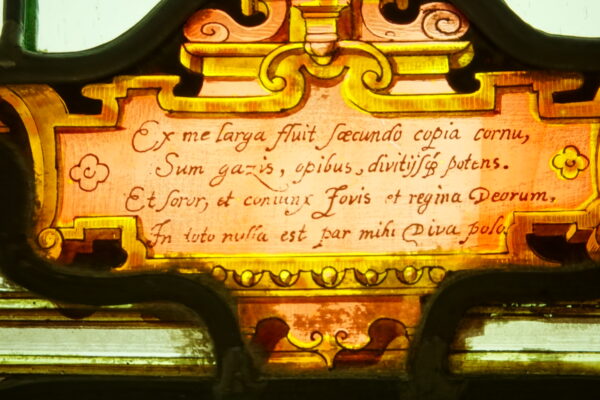 Ex me larga fluit fœcundo copia cornu,
Sum gazis, opibus, divitijsq3 potens.
Et soror, et coniunx Jovis et regina Deorum,
In toto nulla est par mihi Diva polo.